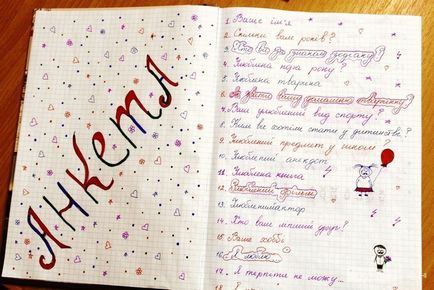 АНКЕТА
1. Ваше ім'я
2. Скільки вам років?
3. Хто ви за знаком зодіаку?
4. Улюблена пора року?
5. Улюблена тварина
6. Як звати вашу домашню тваринку?
7. Ваш улюблений вид спорту?
8. Ким ви хотіли стати у дитинстві?
9. Улюблений предмет у школі?
10. Улюблений анекдот
11. Улюблена книга
12. Улюблений фільм
13. Улюблений актор
14. Хто ваш ліпший друг?
15. Ваше хоббі
16. Я люблю
17. Я терпіти не можу...
18.